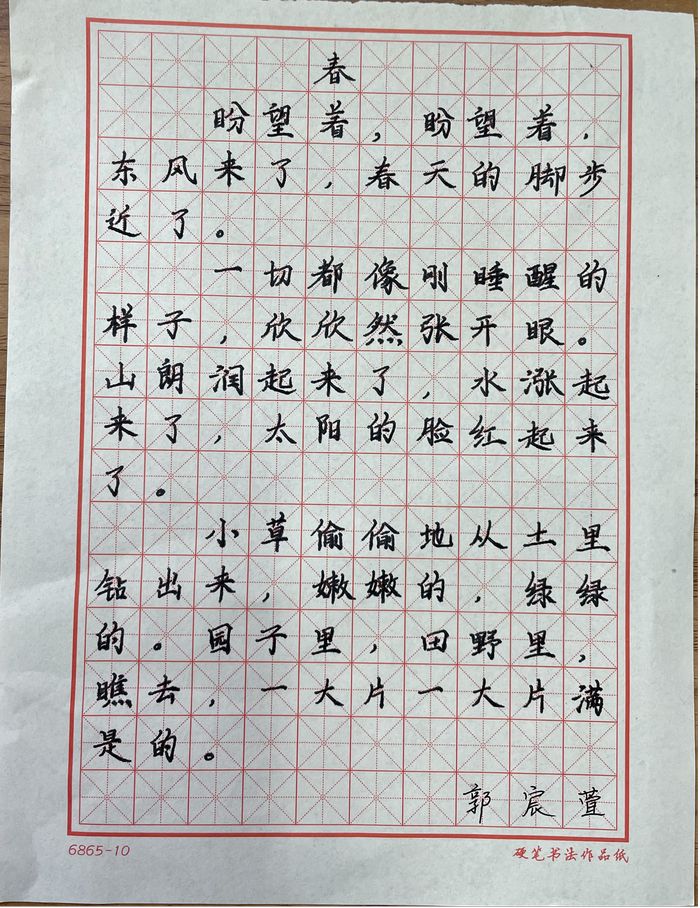 春
盼望着，盼望着，
东风来了，春天的脚步
近了。
一切都像刚睡醒的
样子，欣欣然张开眼。
山朗润起来了，水涨起
来了，太阳的脸红起来
了。
小草偷偷地从土里
钻出来，嫩嫩的，绿绿
的。园子里，田野里，
瞧去，一大片一大片满
是的。
郭宸萱
6865-10 硬笔书法作品纸